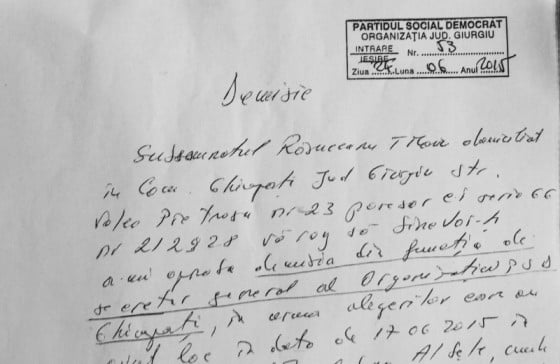 PARTIDUL SOCIAL DEMOCRAT
ORGANIZAȚIA JUD. GIURGIU
INTRARE
IEȘIRE Nr. 53
Ziua 24 Luna 06 Anul 2015
Demisie
Subsemnatul domiciliat
în Com. Ghimpati Jud Giurgiu str.
Valea nr 23 posesor ci seria GG
nr 212928 vă rog să binevoiți
a-mi aproba demisia din funcția de
secretar general al Organizației PSD
Ghimpati, în urma alegerilor care au
avut loc în data de 17 06 2015 în